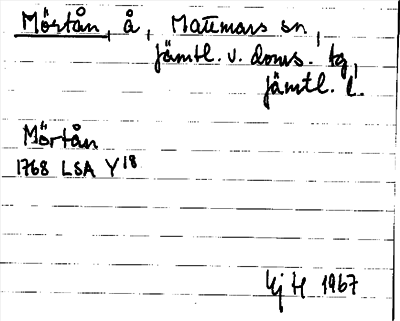 Mörtån, å, Mattmars sn,
jämtl. v. doms. tg,
jämtl. l.
Mörtån
1768 LSA Y18
Kj H 1967